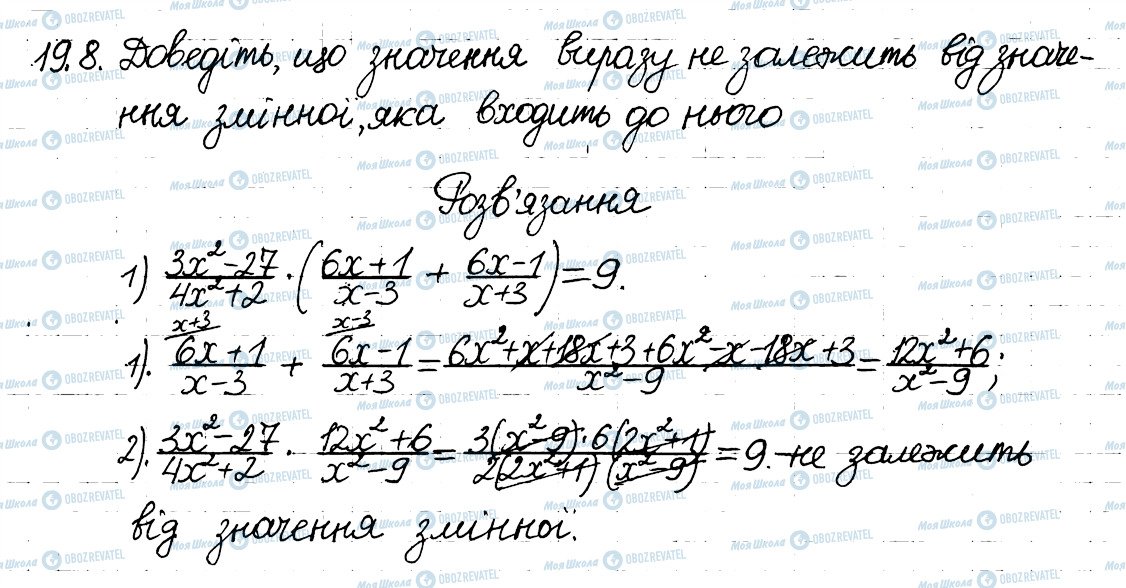 19.8. Доведіть, що значення виразу не залежить від значе-
ння змінної, яка входить до нього
Розв'язання
1) (3x² - 27)/(4x² + 2) · ((6x + 1)/(x - 3) + (6x - 1)/(x + 3)) = 9.
1). x+3 (6x + 1)/(x - 3) + x-3 (6x - 1)/(x + 3) = (6x² + x + 18x + 3 + 6x² - x - 18x + 3)/(x² - 9) = (12x² + 6)/(x² - 9);
2). (3x² - 27)/(4x² + 2) · (12x² + 6)/(x² - 9) = (3(x² - 9) · 6(2x² + 1))/(2(2x² + 1)(x² - 9)) = 9. - не залежить
від значення змінної.